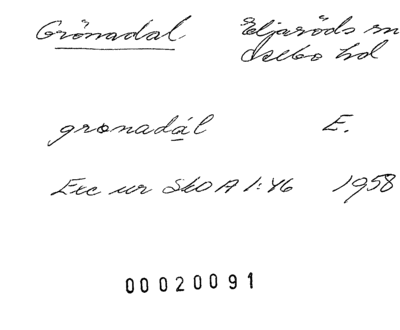 Grönadal Eljaröds sn
Ingelstads hd
gronadál E.
Exc ur SkO A 1:46 1958
00020091